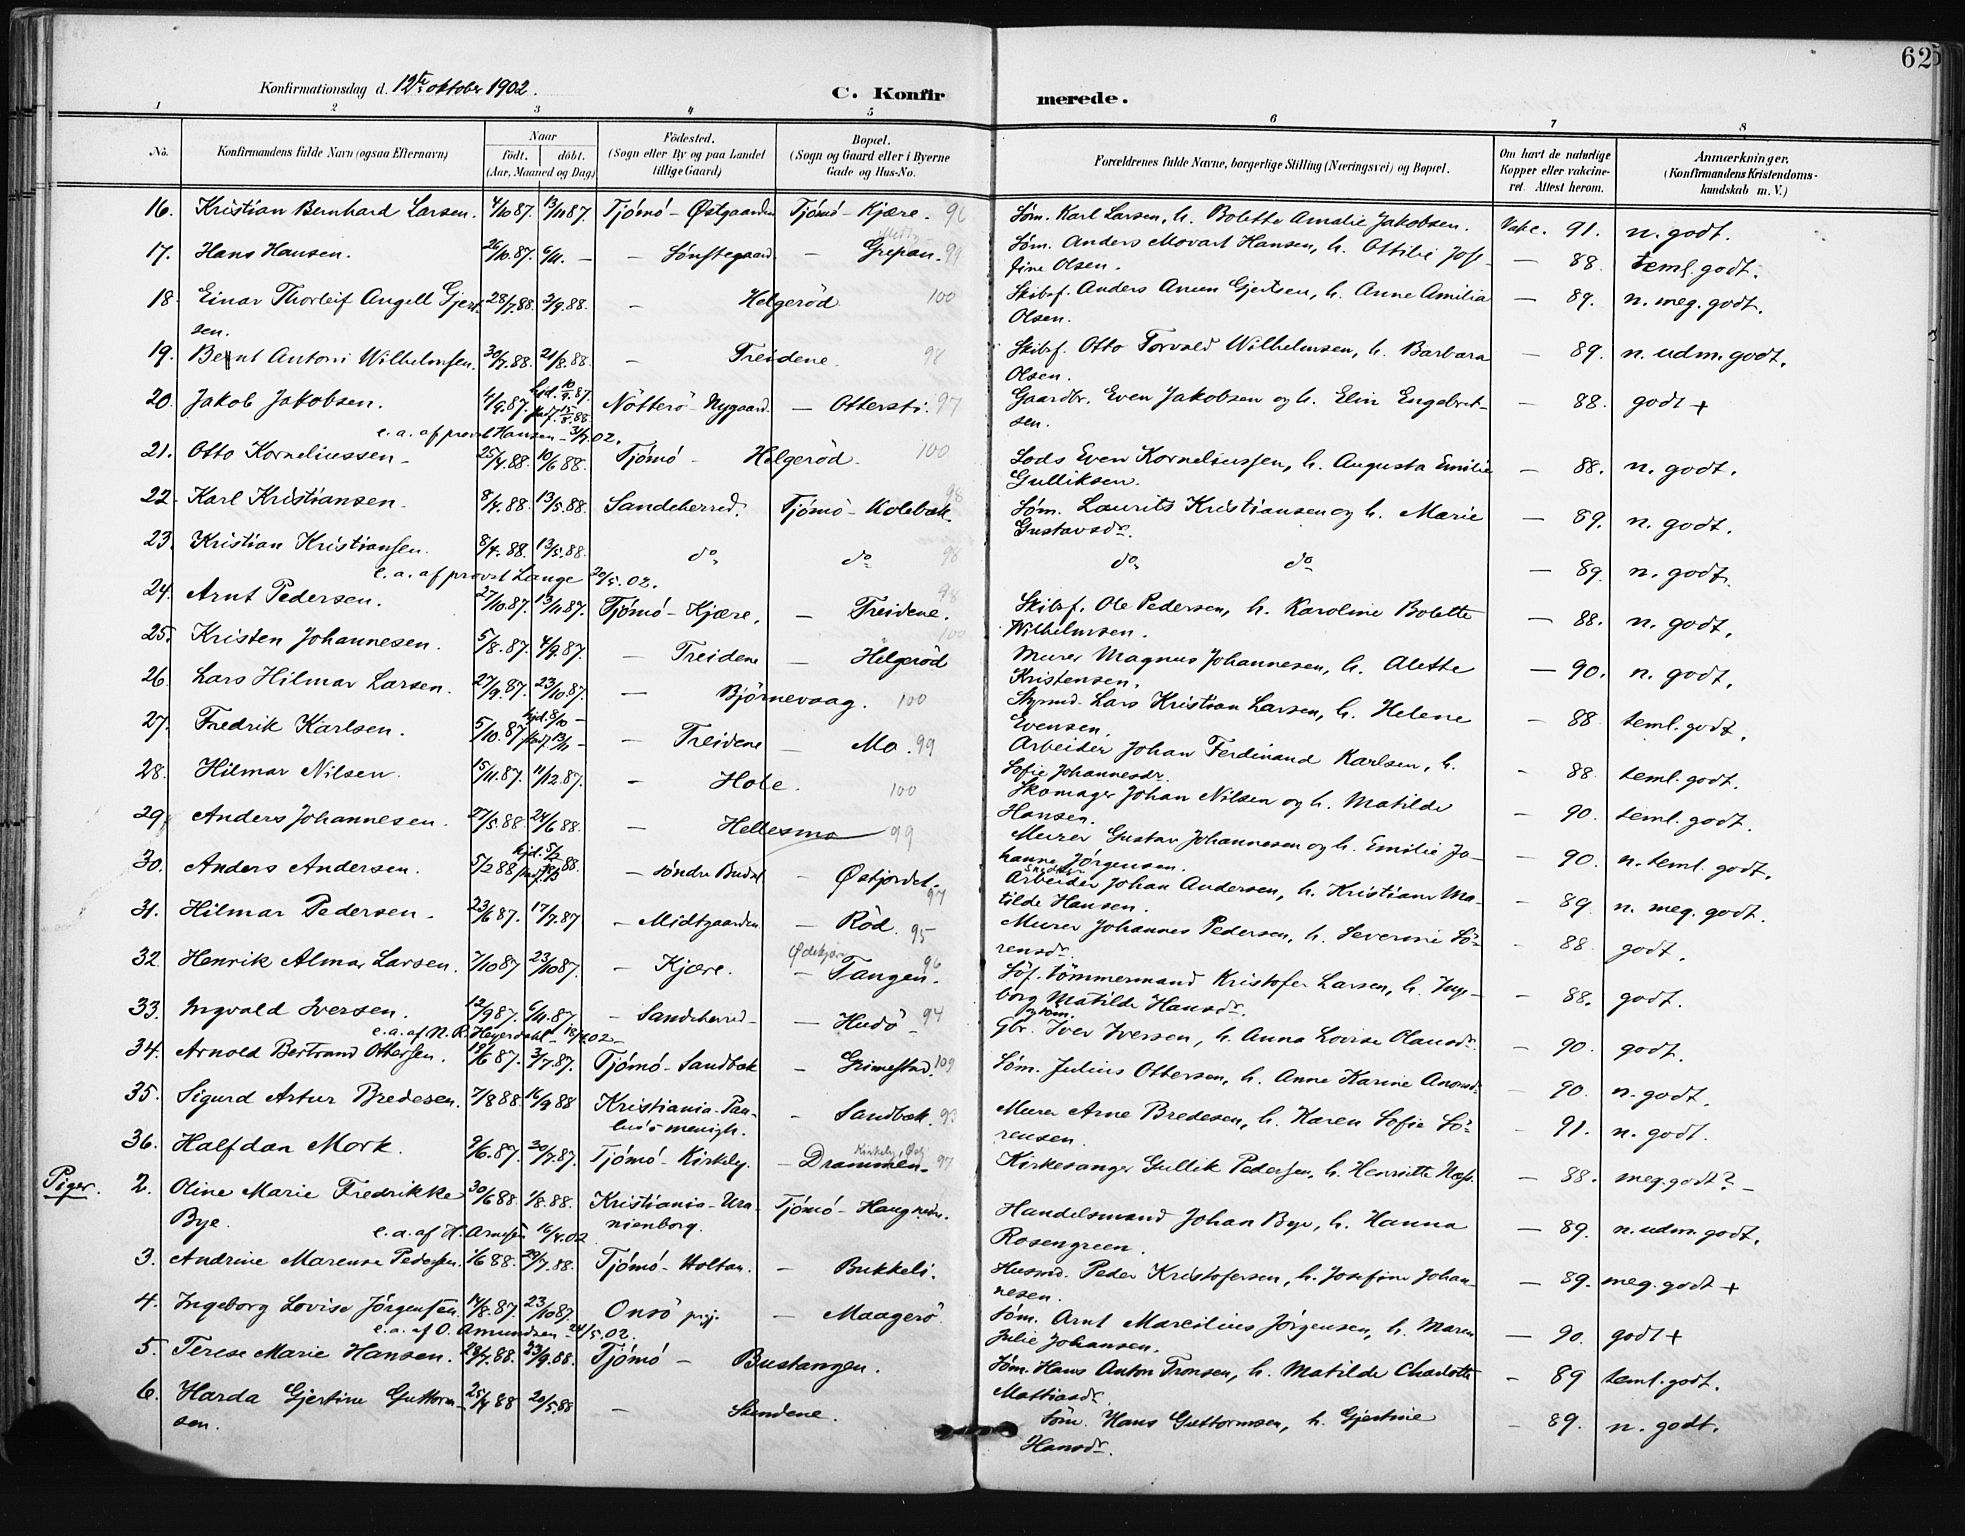 62
Konfirmationsdag d. 12te oktober 1902.
C. Konfirmerede.
1 2 3 4 5 6 7 8
No. Konfirmandens fulde Navn (ogsaa Efternavn) Naar födt. döbt. (Aar, Maaned og Dag) Födested. (Sogn eller By og paa Landet tillige Gaard) Bopæl. (Sogn og Gaard eller i Byerne Gade og Hus-No. Forældrenes fulde Navne, borgerlige Stilling (Næringsvei) og Bopæl. Om havt de naturlige Kopper eller vakcineret. Attest herom. Anmærkninger. (Konfirmandens Kristendomskundskab m. V.)
16. Kristian Bernhard Larsen. 4/10 87. 13/11 87. Tjömö - Östgaarden Tjömö - Kjære. 96 Söm. Karl Larsen, h. Bolette Amalie Jakobsen. Vakc. 91. n. godt.
17. Hans Hansen. 26/10 87. 6/11. — — Sönstegaard — Grepan. 99 Söm. Anders Movart Hansen, h. Ottilie Josefine Olsen. — 88. teml. godt.
18. Einar Thorleif Angell Gjertsen. 28/7 88. 2/9 88. — Helgeröd 100 Skibsf. Anders Anun Gjertsen, h. Anne Amilia Olsen. — 89. n. meg. godt.
19. Bernt Antoni Wilhelmsen. 30/7 88. 21/8 88. — Treidene. 98 Skibsf. Otto Torvald Wilhelmsen, h. Barbara Olsen. — 89. n. udm. godt.
20. Jakob Jakobsen. 4/9 87. hjd. 10/9 87. Nötterö - Nygaard. — Ottersti. 97 Gaardbr. Even Jakobsen og h. Elin Engebretsen. — 88. godt +
e. a. af provst Hansen - 31/7 02.
21. Otto Korneliussen - 25/4 88. 10/6 88. Tjömö - Helgeröd. 100 Lods Even Korneliussen, h. Augusta Emilie Gulliksen. — 88. n. godt.
22. Karl Kristiansen. 8/4 88. 13/5 88. Sandeherred. Tjömö - Kolebæk. 98 Söm. Laurits Kristiansen og h. Marie Gustavsdr. — 89. n. godt.
23. Kristian Kristiansen. 8/4 88. 13/5 88. do do 98 do do — 89. n. godt.
e. a. af provst Lange 20/5. 02.
24. Arnt Pedersen. 27/10 87. 13/11 87. Tjömö - Kjære. — Treidene. 98 Skibsf. Ole Pedersen, h. Karoline Bolette Wilhelmsen. — 88. n. godt.
25. Kristen Johannesen. 5/8 87. 4/9 87. — Treidene — Helgeröd 100 Murer Magnus Johannesen, h. Alette Kristensen. — 90. n. godt.
26. Lars Hilmar Larsen. 27/9 87. 23/10 87. — Björnevaag. 100 Styrmd. Lars Kristian Larsen, h. Helene Evensen. — 88 teml. godt.
27. Fredrik Karlsen. 5/10 87 hjd. 8/10 — — Treidene — Mo. 99 Arbeider Johan Ferdinand Karlsen, h. Sofie Johannesdr. - 88. teml. godt.
28. Hilmar Nilsen. 15/11 87. 11/12 87. - Hole. 100 Skomager Johan Nilsen og h. Matilde Hansen. - 90. teml. godt.
29. Anders Johannesen. 27/5 88 24/6 88. — Hellesmo 99 Murer Gustav Johannesen og h. Emilie Johanne Jörgensen. - 90. n. teml. godt.
30. Anders Andersen. 5/2 88 hjd. 5/2 88. - söndre Budal - Östjordet. 97 Arbeider Johan Andersen, h. Kristiane Matilde Hansen. - 89. n. meg. godt.
31. Hilmar Pedersen. 23/6 87. 17/7 87 - Midtgaarden - Röd. 95 Murer Johannes Pedersen, h. Severine Sörensdr. - 88. godt.
32. Henrik Almar Larsen. 7/10 87 23/10 87. - Kjære. - Tangen. 96 Söf. tömmermand Kristofer Larsen, h. Ingeborg Matilde Hansdr. - 88. godt.
33. Ingvald Iversen. 12/9 87. 6/11 87. - Sandeherred - — Hudö - 94 Gbr. Iver Iversen, h. Anna Lovise Olausdr. - 90. godt.
e. a. af N. R. Heyerdahl 18/4 02 -
34. Arnold Bertrand Ottersen. 19/6 87. 3/7 87. Tjömö - Sandbæk - Grimestad. 109 Söm. Julius Ottersen, h. Anne Karine Anonsdr. - 90. n. godt.
35. Sigurd Artur Bredesen. 7/8 88 16/9 88 Kristiania - Paulus's menigh. - Sandbæk. 93 Murer Arne Bredesen, h. Karen Sofie Sörensen. - 91. n. godt.
36. Halfdan Mork. 9/6 87. 30/7 87. Tjömö - Kirkeby. - Drammen. 97 Kirkesanger Gullik Pedersen, h. Henriette Næss. - 88. meg. godt? -
Piger. 2. Oline Marie Fredrikke Bye. 30/6 88. 1/8 88. Kristiania - Uranienborg. Tjömö - Haug nedre. Handelsmand Johan Bye, h. Hanna Rosengreen. - 89. n. udm. godt.
e. a. af H. Arnesen 16/4 02
3. Andrine Marensa Pedersen. 1/6 88. 29/7 88. Tjömö - Holtan. — Bukkeli. Husmd. Peder Kristofersen, h. Josefine Johannesen. - 89. meg. godt +
4. Ingeborg Lovise Jörgensen. 14/8 87. 23/10 87. Onsö prgj. — Maagerö. Söm. Arnt Marcilius Jörgensen, h. Maren Julie Johansen. — 90. godt +
e. a. af O. Amundsen 24/5. 02.
5. Terese Marie Hansen. 28/7 88. 23/9 88. Tjömö - Bustangen. Söm. Hans Anton Tronsen, h. Matilde Charlotte Mattiasdr. - 89 teml. godt.
6. Harda Gjertine Guttormsen. 25/4 88 20/5 88 — Sundene. Söm. Hans Guttormsen, h. Gjertine Hansdr. - 89. n. godt.